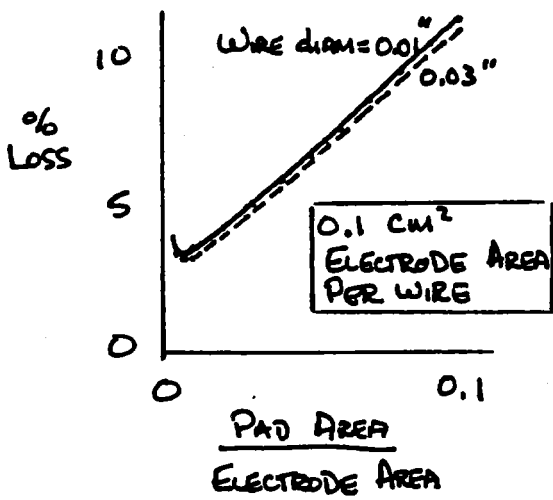 10
WIRE DIAM=0.01"
0.03"
%
LOSS
5
0.1 CM²
ELECTRODE AREA
PER WIRE
0
0
0.1
PAD AREA
ELECTRODE AREA